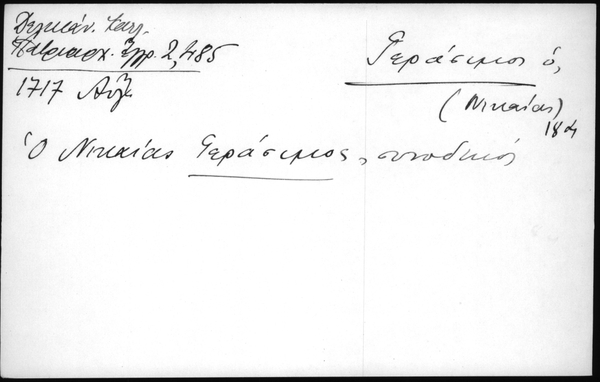 Δελικάν. Καλ.
Πατριαρχ. Ἔγγρ. 2, 485
1717 Αὔγ.
Γεράσιμος ὁ,
(Νικαίας)
18α
Ὁ Νικαίας Γεράσιμος, συνοδικός